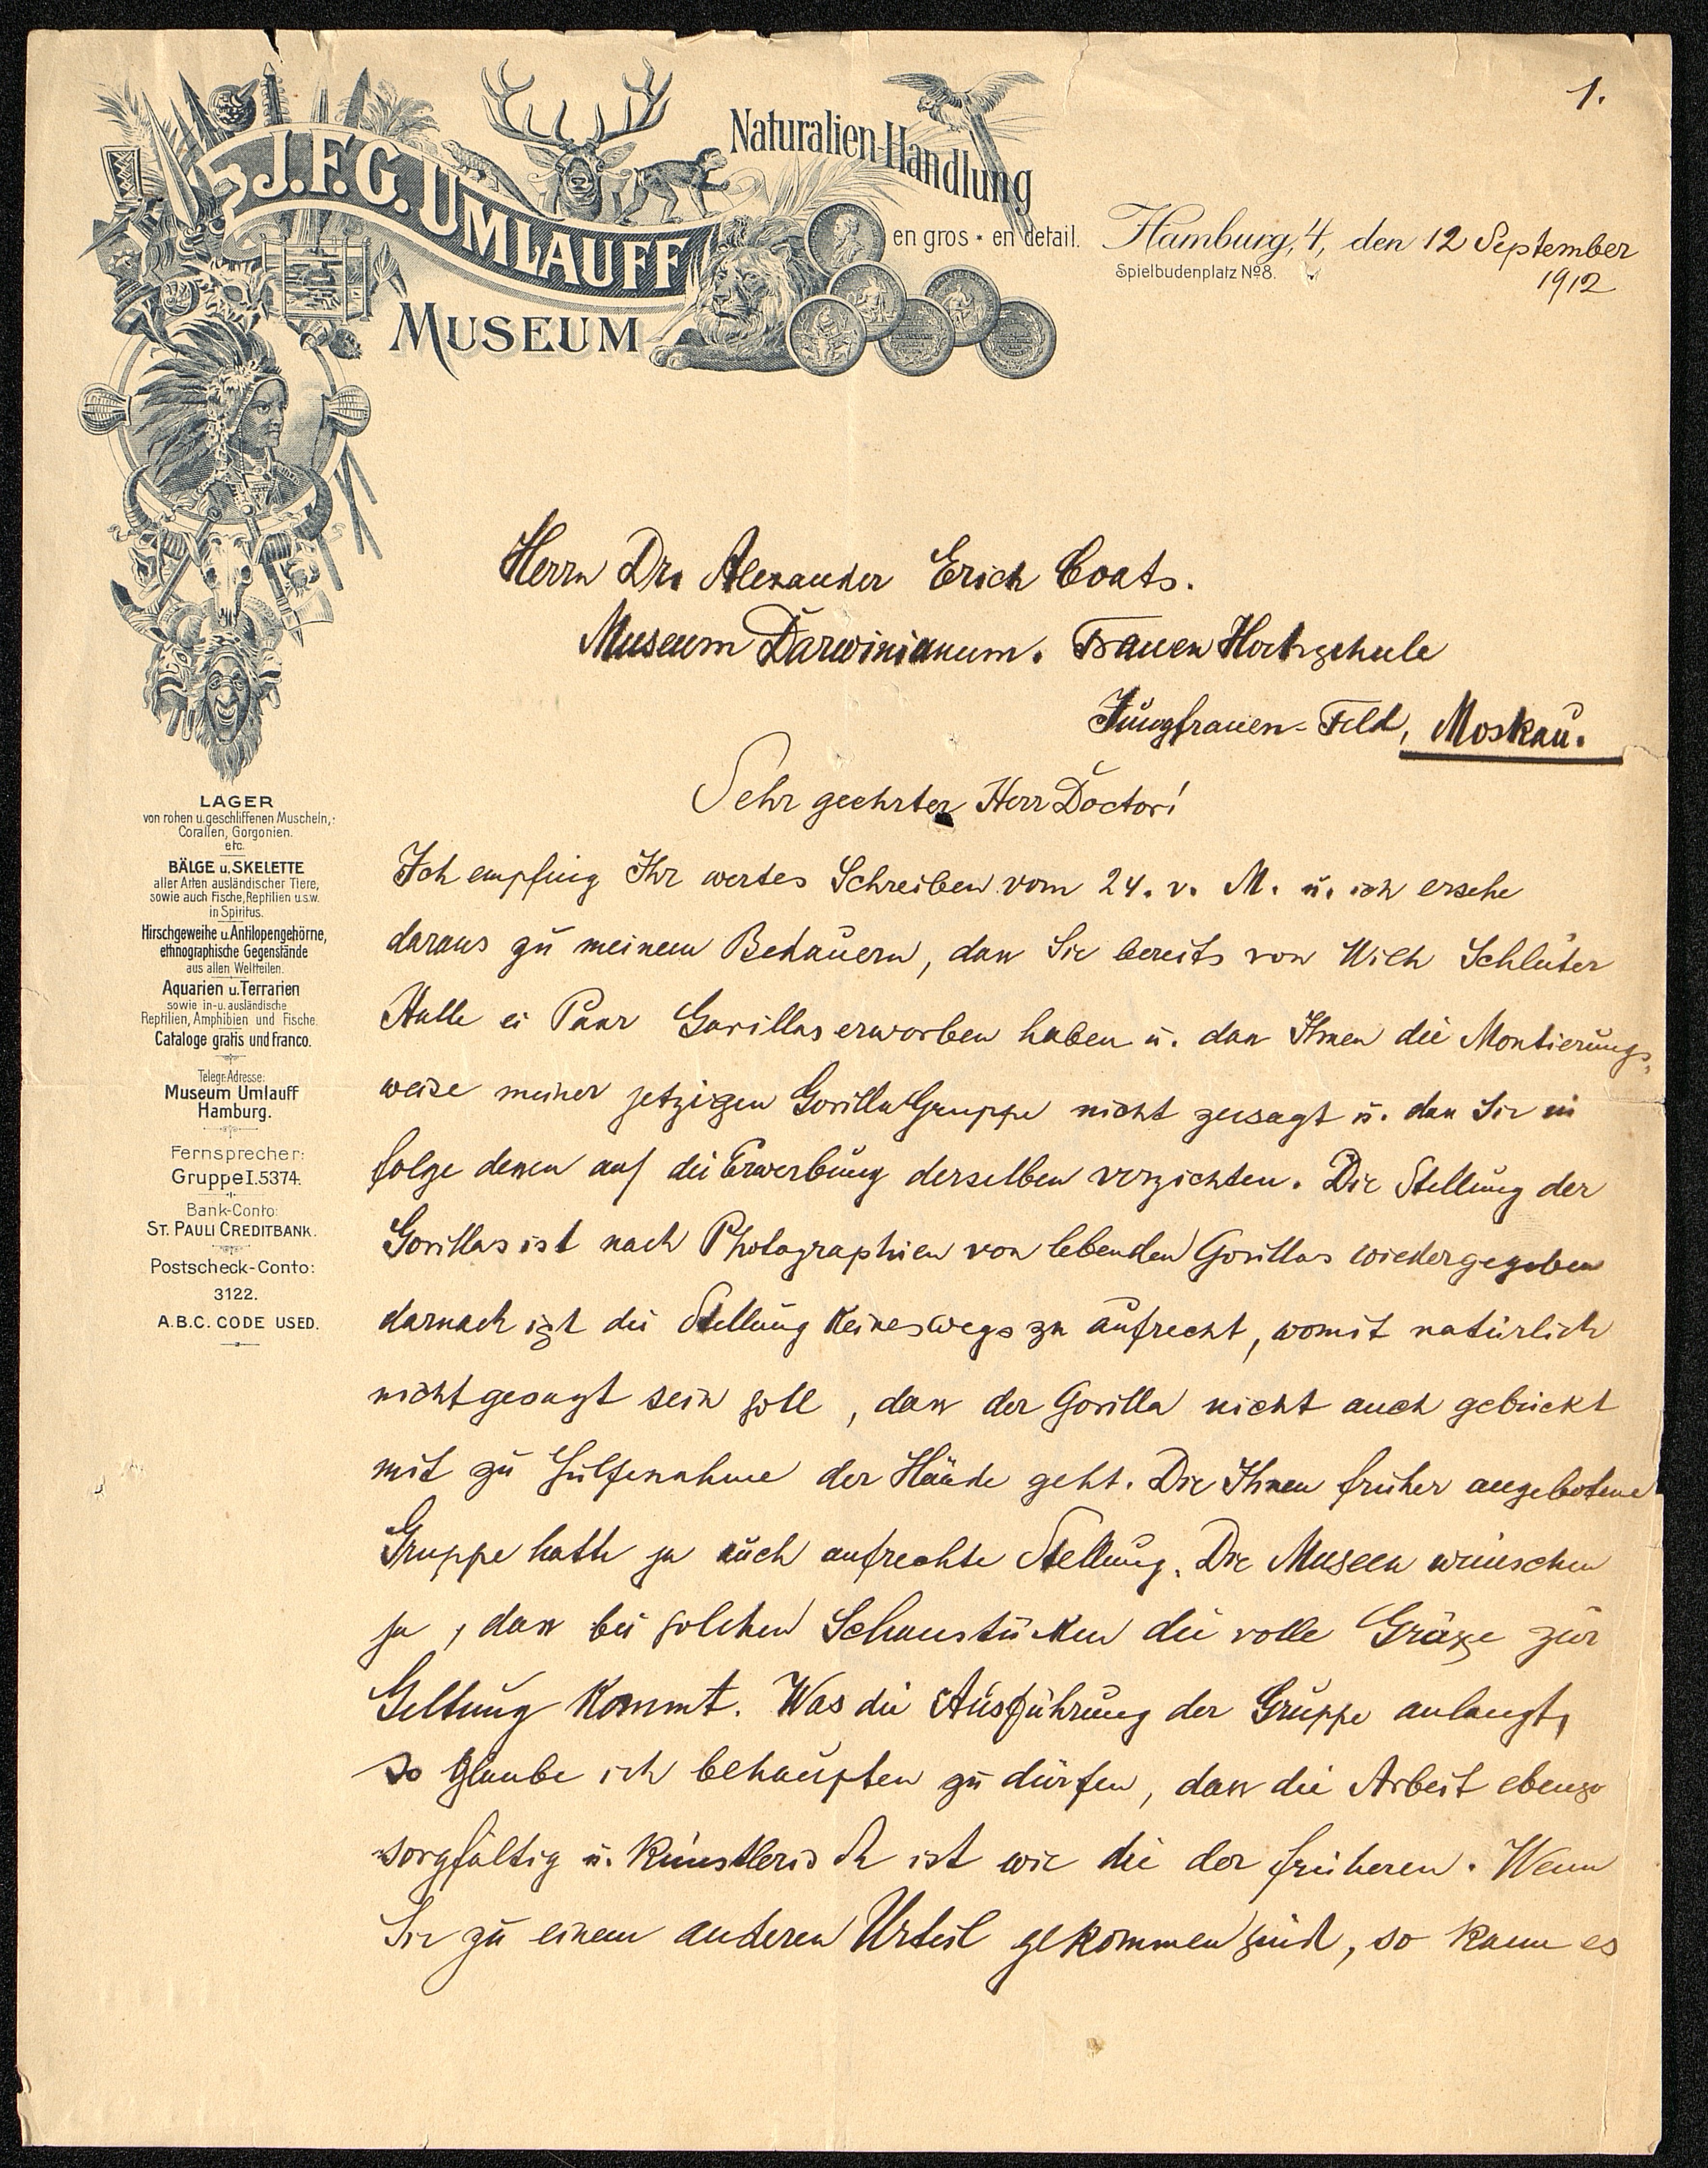 1.
J.F.G. UMLAUFF
MUSEUM
Naturalien-Handlung
en gros • en detail.
Hamburg, 4, den 12 September
1912
Spielbudenplatz No 8.
Herrn Dr. Alexander Erich Coats.
Museum Darwinianum. Frauen Hochschule
Jungfrauen-Feld, Moskau.
Sehr geehrter Herr Doctor!
Ich empfing Ihr wertes Schreiben vom 24. v. M. u. ich ersehe
daraus zu meinem Bedauern, dass Sie bereits von Wilh Schlüter
Halle ei Paar Gorillas erworben haben u. dass Ihnen die Montierungs-
weise meiner jetzigen Gorilla Gruppe nicht zusagt u. dass Sie in
folge dessen auf die Erwerbung derselben verzichten. Die Stellung der
Gorillas ist nach Photographien von lebenden Gorillas wiedergegeben
darnach ist die Stellung keineswegs zu aufrecht, womit natürlich
nicht gesagt sein soll, dass der Gorilla nicht auch gebückt
mit zu Hülfenahme der Hände geht. Die Ihnen früher angebotene
Gruppe hatte ja auch aufrechte Stellung. Die Museen wünschen
ja, dass bei solchen Schaustücken die volle Grösse zur
Geltung kommt. Was die Ausführung der Gruppe anlangt,
so glaube ich behaupten zu dürfen, dass die Arbeit ebenso
sorgfältig u. künstlerisch ist wie die der früheren. Wenn
Sie zu einem anderen Urteil gekommen sind, so kann es
LAGER
von rohen u. geschliffenen Muscheln,
Corallen, Gorgonien.
etc.
BÄLGE u. SKELETTE
aller Arten ausländischer Tiere,
sowie auch Fische, Reptilien u.s.w.
in Spiritus.
Hirschgeweihe u. Antilopengehörne,
ethnographische Gegenstände
aus allen Weltteilen.
Aquarien u. Terrarien
sowie in- u. ausländische
Reptilien, Amphibien und Fische.
Cataloge gratis und franco.
Telegr. Adresse:
Museum Umlauff
Hamburg.
Fernsprecher:
Gruppe I. 5374.
Bank-Conto:
ST. PAULI CREDITBANK.
Postscheck-Conto:
3122.
A.B.C. CODE USED.